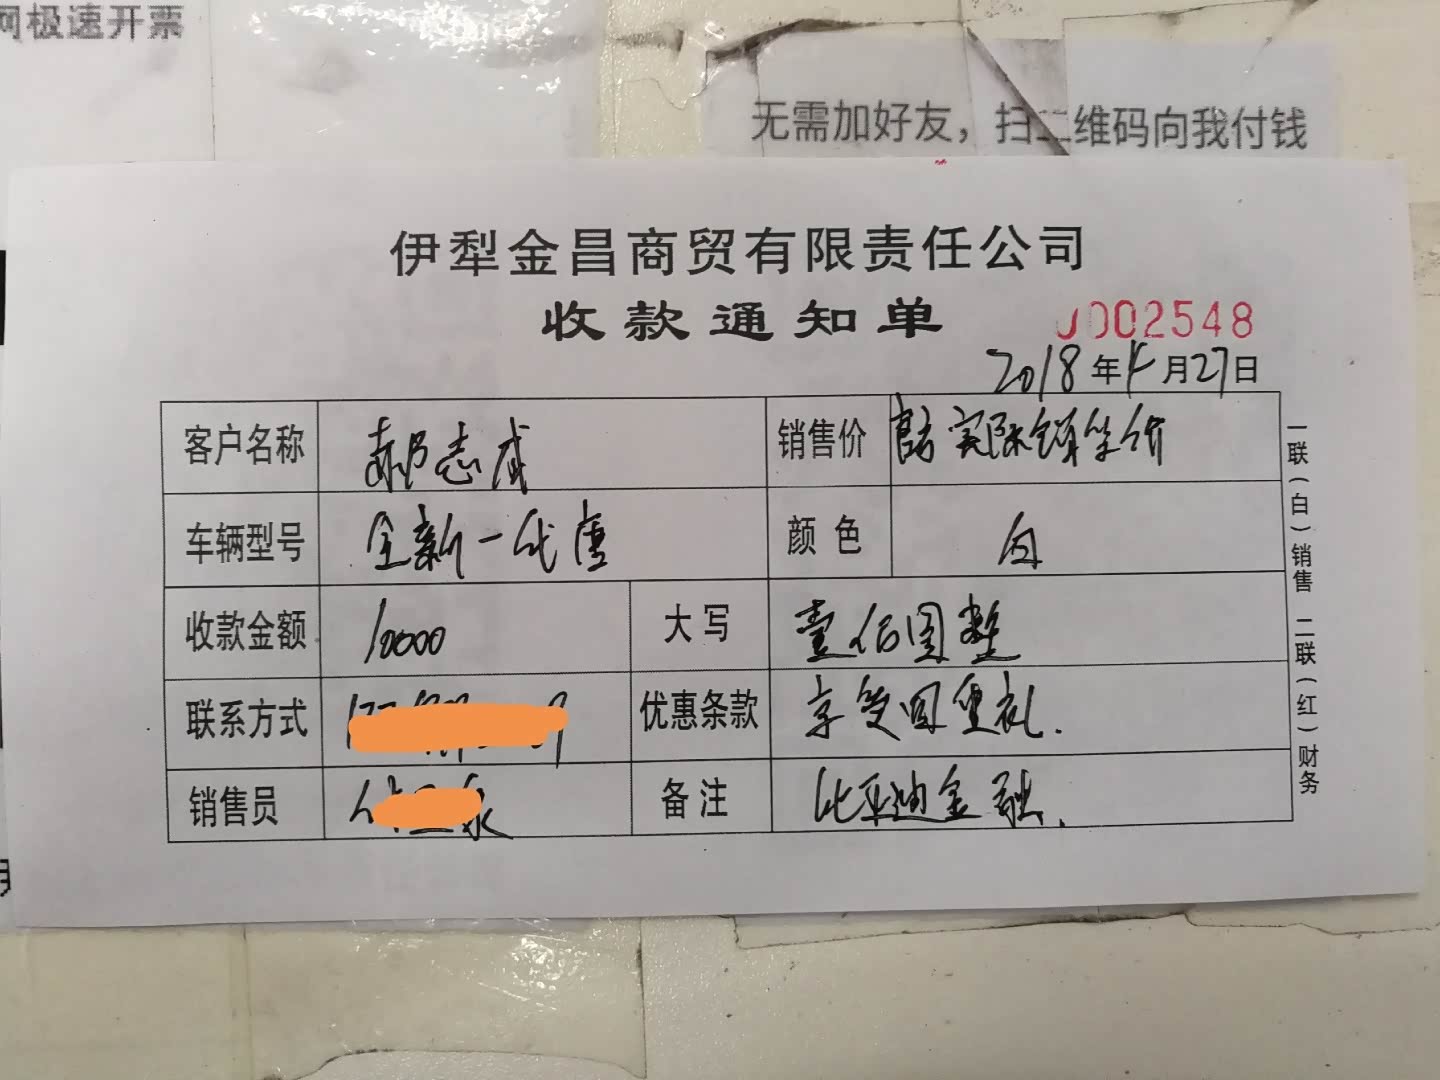 网极速开票
无需加好友，扫二维码向我付钱
伊犁金昌商贸有限责任公司
收款通知单
0002548
2018年4月27日
客户名称 郝志成 销售价 实际销售价
车辆型号 全新一代唐 颜色 白
收款金额 10000 大写 壹佰圆整
联系方式 优惠条款 享受回重礼.
销售员 备注 比亚迪金融.
一联（白）销售 二联（红）财务
月